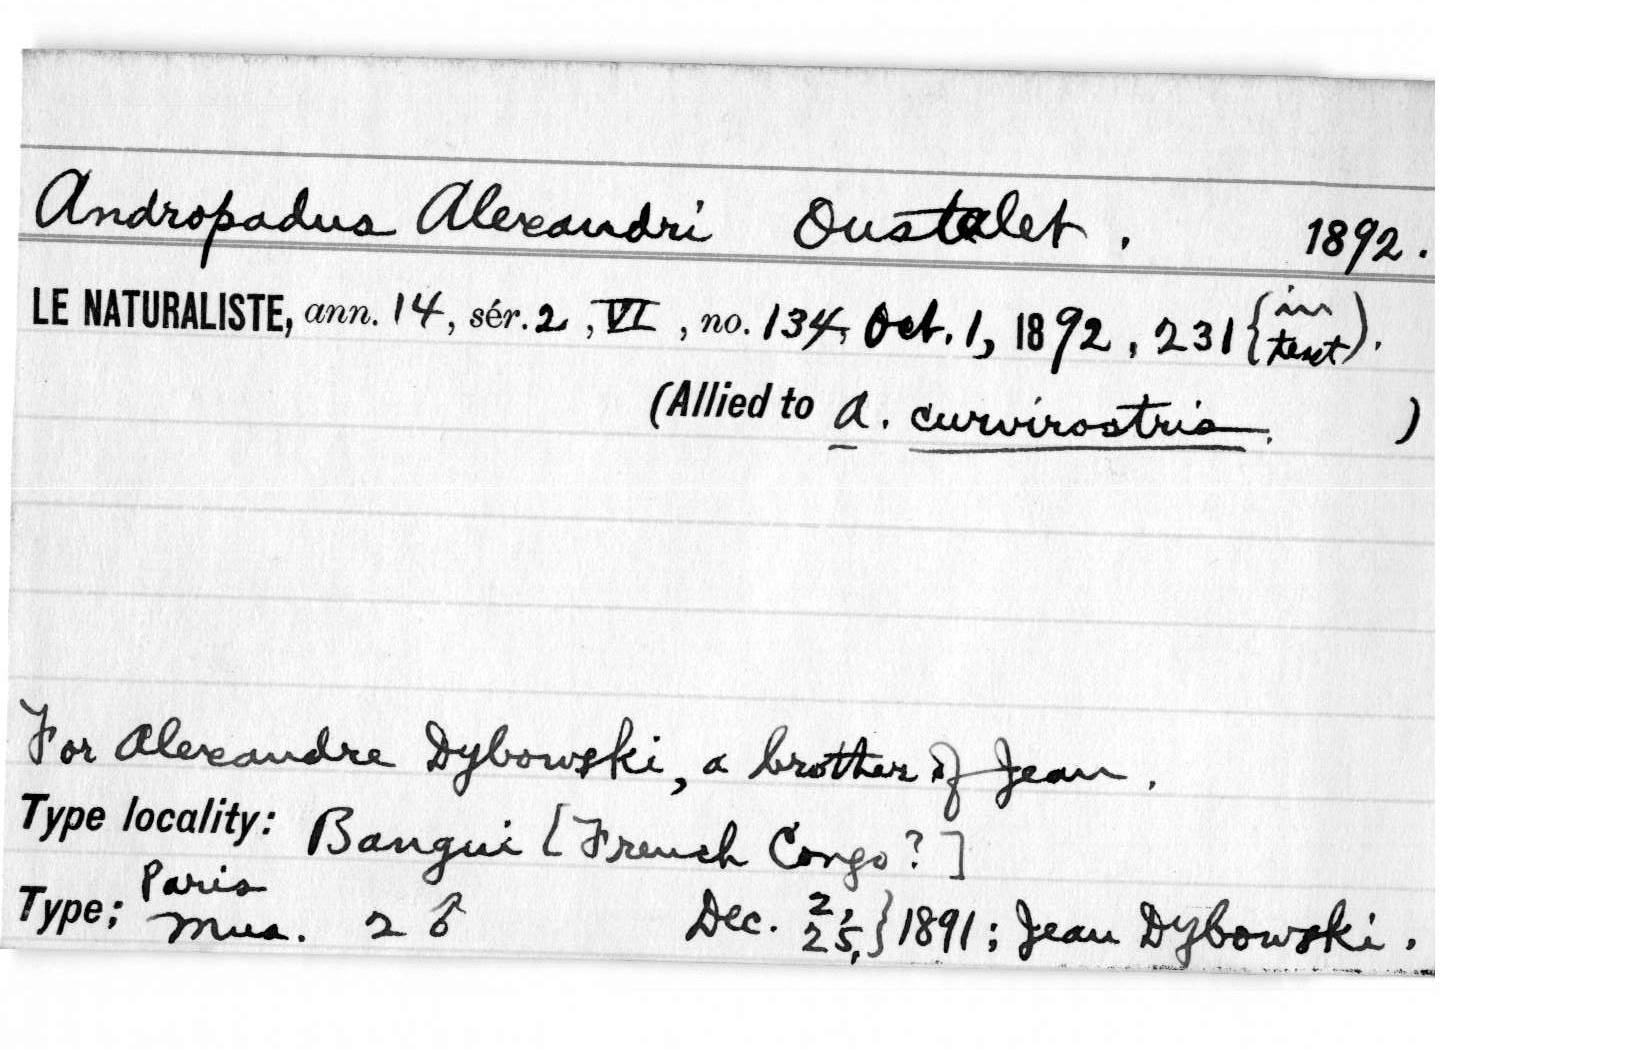 Andropadus Alexandri Oustalet. 1892.
LE NATURALISTE, ann. 14, sér. 2, VI, no. 134, Oct. 1, 1892, 231 {in text).
(Allied to A. curvirostris. )
For Alexandre Dybowski, a brother of Jean.
Type locality: Bangui [French Congo?]
Type; Paris Mus. 2 ♂ Dec. 2, 25,} 1891; Jean Dybowski.